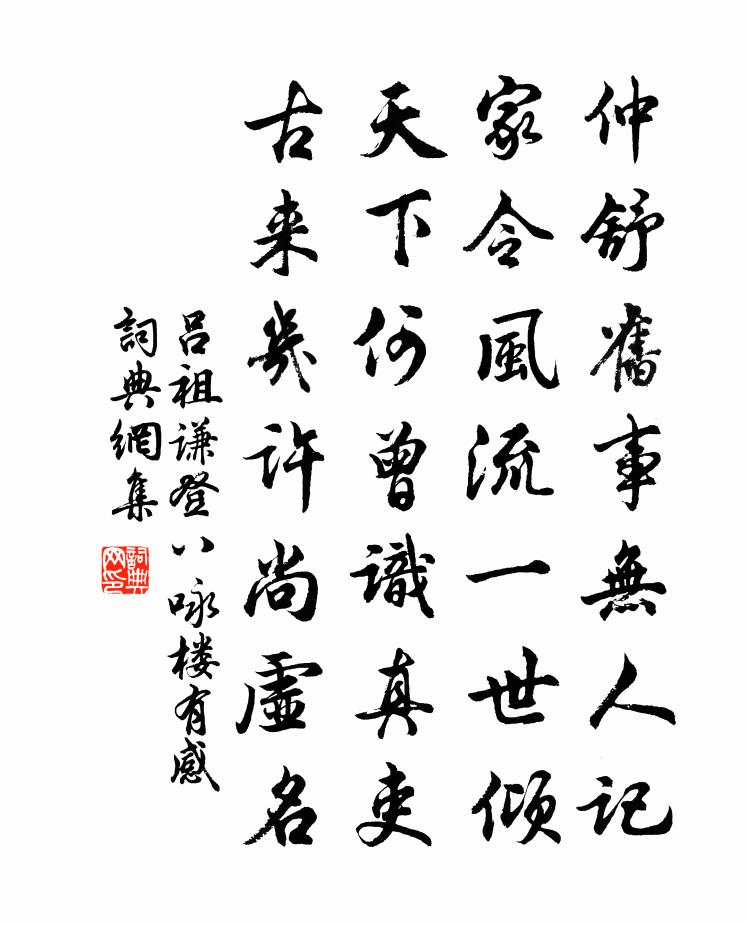 仲舒舊事無人記
家令風流一世傾
天下何曾識真吏
古来幾許尚虛名
呂祖谦登八咏楼有感
詞典網集
詞典网印